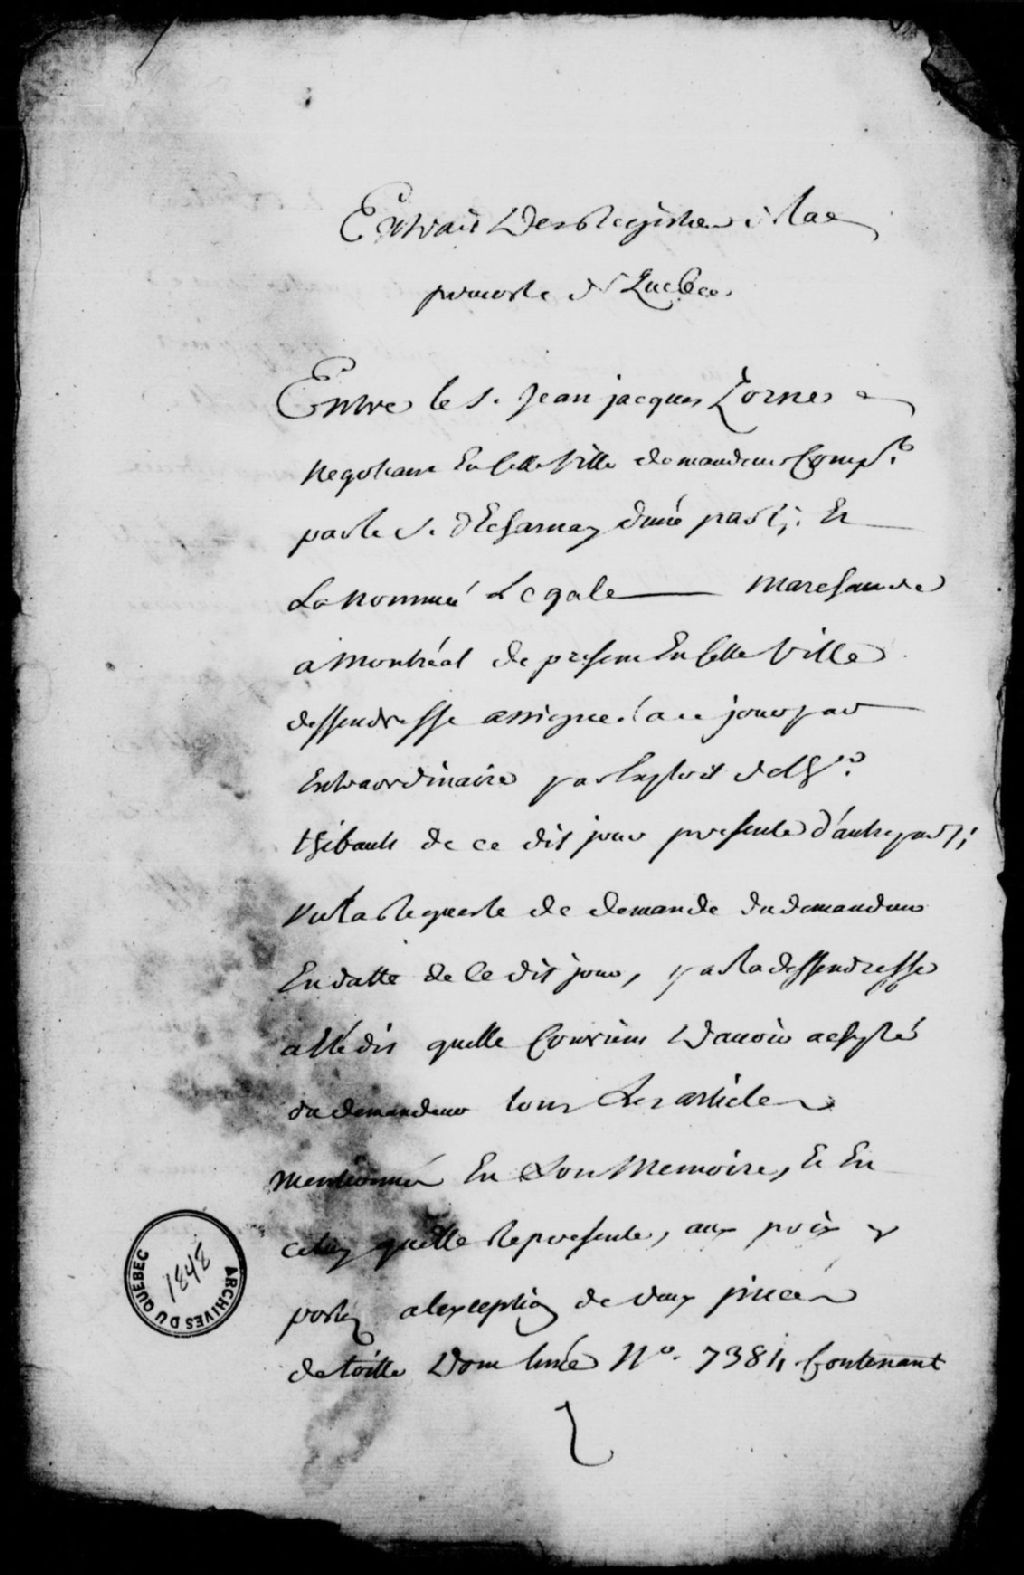 Extrait Des Registres de la
prevosté de Quebec
Entre le S. Jean jacques Zorne
Negotiant En Cette Ville demandeur Comp.t
par le S. dEcharnay d'une part, Et
La nommeé Legale marchande
a Montréal de present En Cette Ville
deffendresse assigneé a ce jour par
Extraordinaire par Exploit de
thibault de ce dit jour presente d'autre part;
Vu la Requeste de demande du demandeur
En datte de Ce dit jour, par la deffendresse
a été dit quelle Convient D'avoir achepté
du demandeur tous Les articles
mentionnés En Son Memoire, Et En
celuy quelle Represente, aux prix y
portez a lexception de deux pieces
de toille Dont lune No. 7384, Contenant
ARCHIVES DU QUEBEC
1848